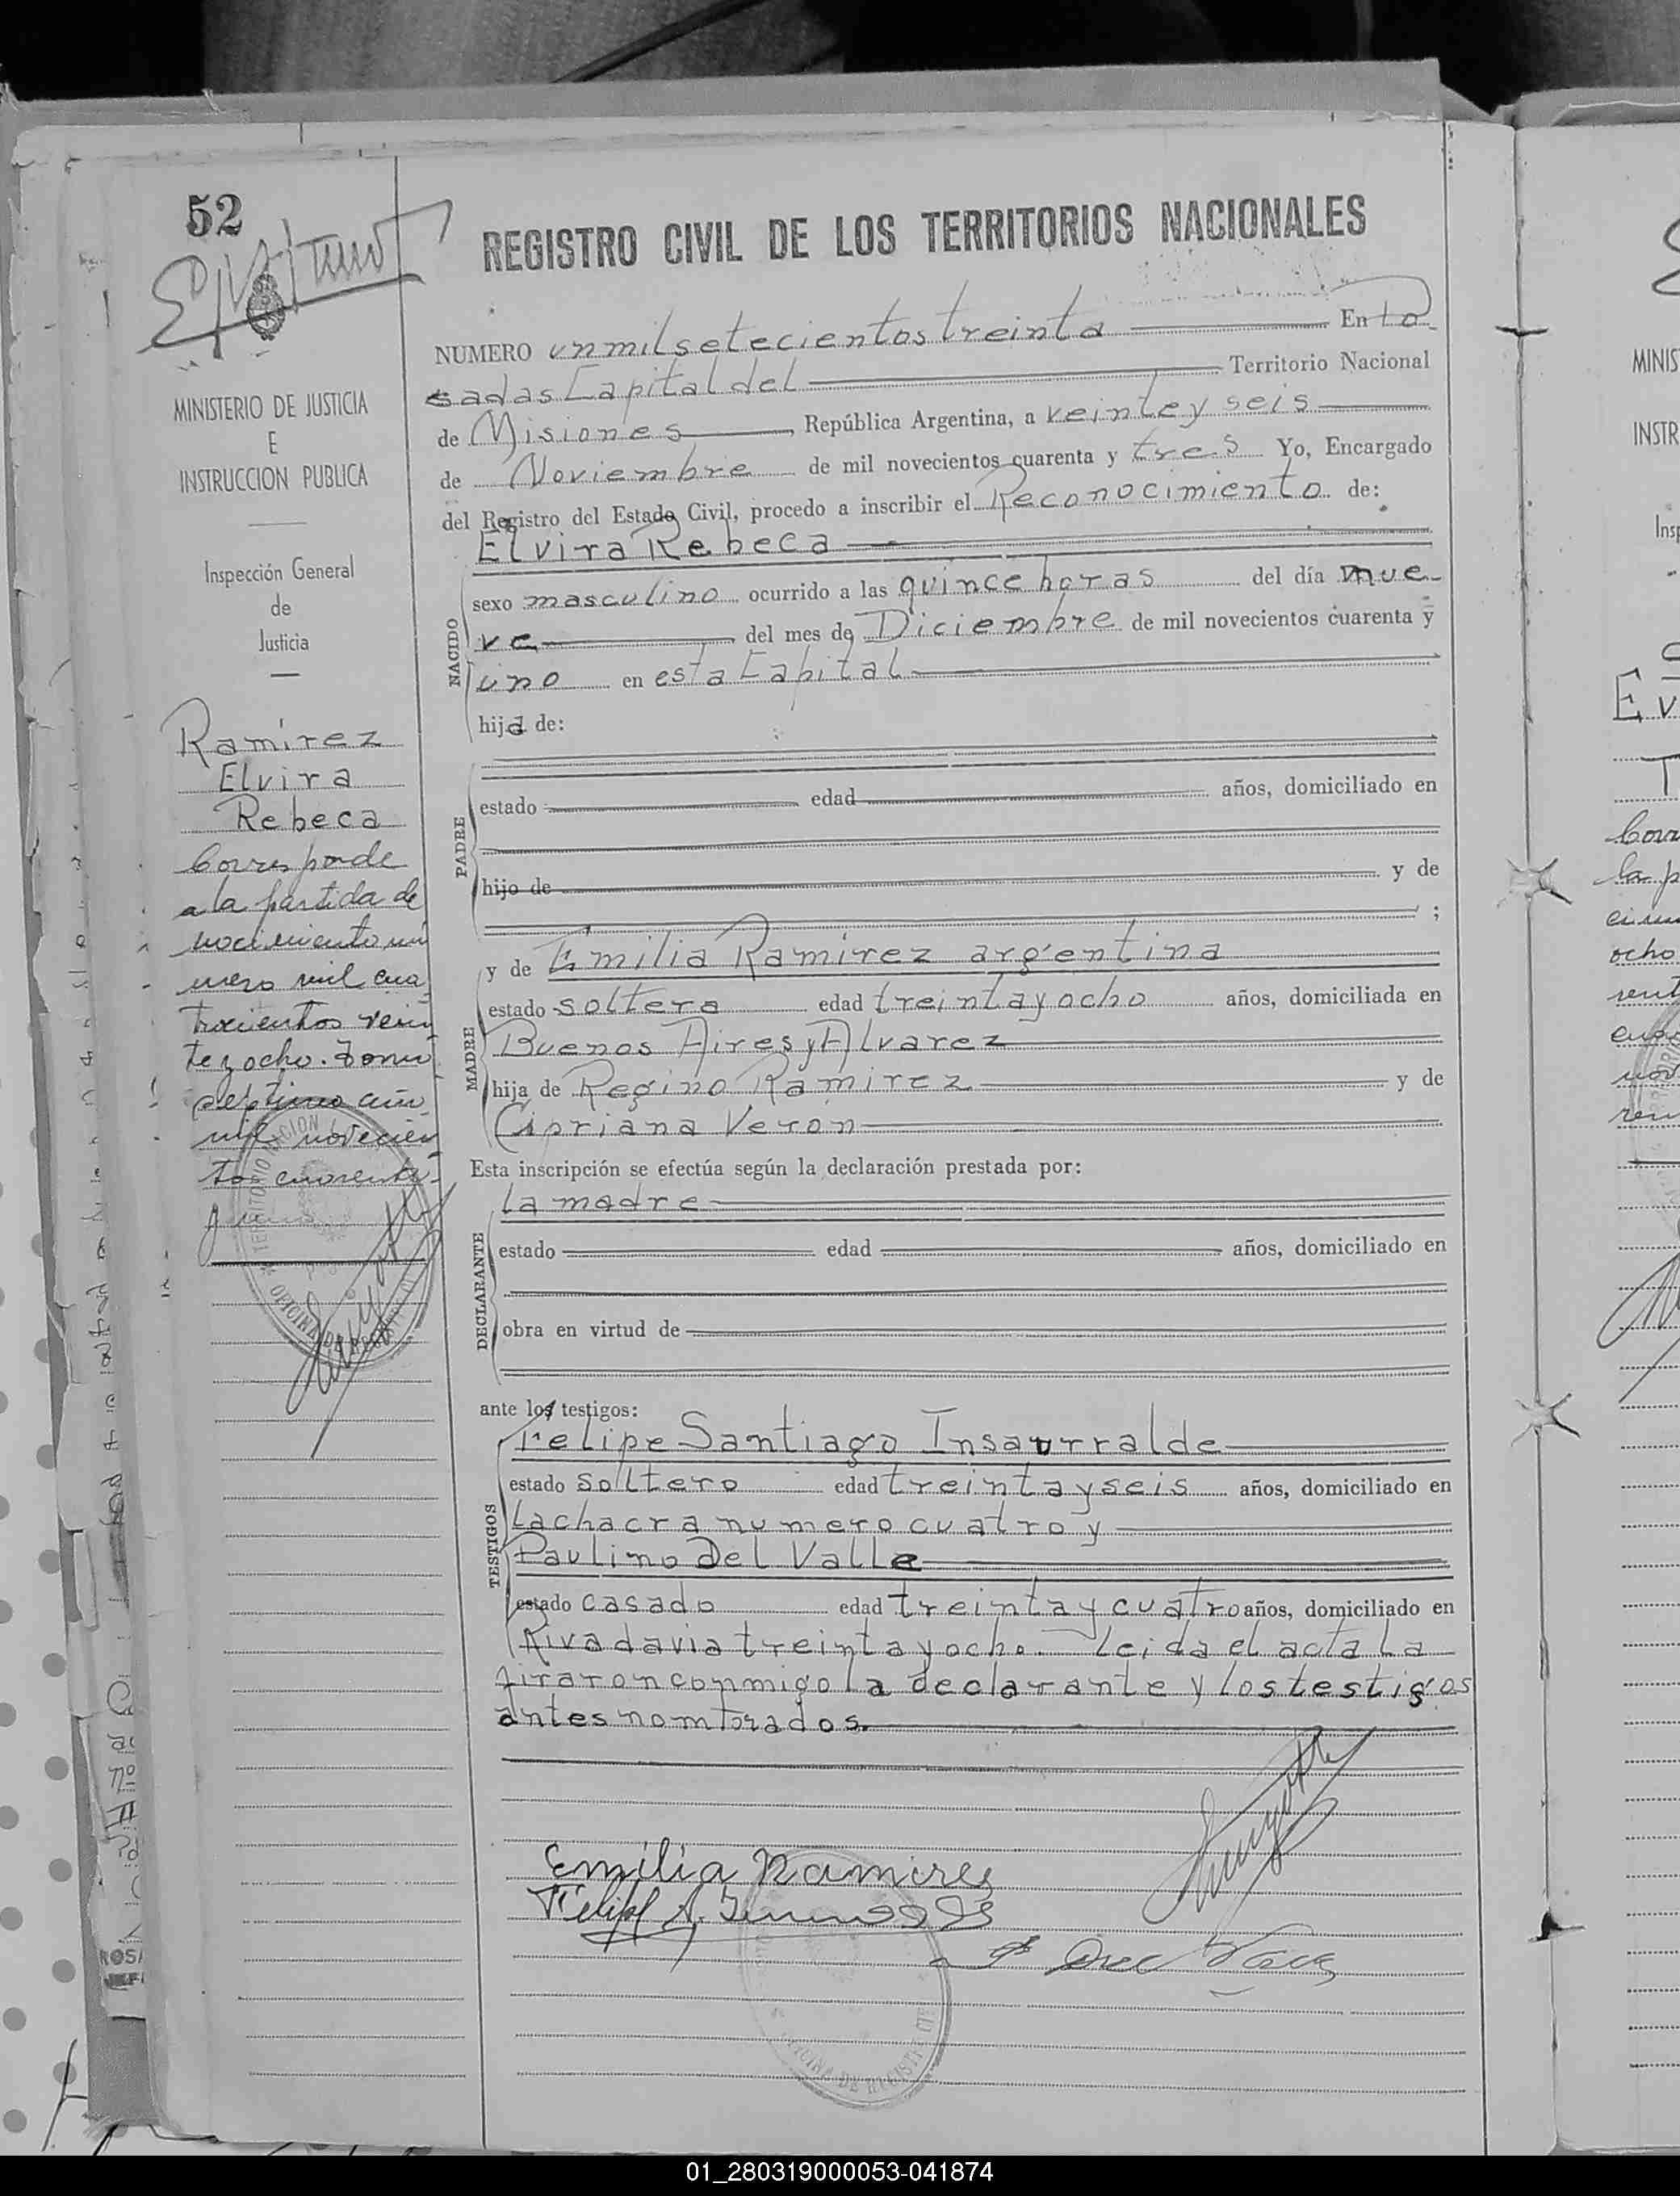 52
REGISTRO CIVIL DE LOS TERRITORIOS NACIONALES
MINISTERIO DE JUSTICIA
E
INSTRUCCION PUBLICA
Inspección General
de
Justicia
Ramirez
Elvira
Rebeca
Corresponde
a la partida de
nacimiento nú
mero mil cua
trocientos vein
te y ocho. Tomo
septimo año
mil novecien
tos cuarenta
y uno
NUMERO un mil setecientos treinta En Po
sadas Capital del Territorio Nacional
de Misiones, República Argentina, a veinte y seis
de Noviembre de mil novecientos cuarenta y tres Yo, Encargado
del Registro del Estado Civil, procedo a inscribir el Reconocimiento de:
Elvira Rebeca
NACIDO
sexo masculino ocurrido a las quince horas del día nue
ve del mes de Diciembre de mil novecientos cuarenta y
uno en esta Capital
hija de:
PADRE
estado edad años, domiciliado en
hijo de y de
;
MADRE
y de Emilia Ramirez argentina
estado soltera edad treinta y ocho años, domiciliada en
Buenos Aires y Alvarez
hija de Regino Ramirez y de
Cipriana Veron
Esta inscripción se efectúa según la declaración prestada por:
la madre
DECLARANTE
estado edad años, domiciliado en
obra en virtud de
ante los testigos:
TESTIGOS
Felipe Santiago Insaurralde
estado soltero edad treinta y seis años, domiciliado en
la chacra numero cuatro y
Paulino Del Valle
estado casado edad treinta y cuatro años, domiciliado en
Rivadavia treinta y ocho. Leida el acta la
firaron conmigo la declarante y los testigos
antes nombrados.
Emilia Ramires
01_280319000053-041874